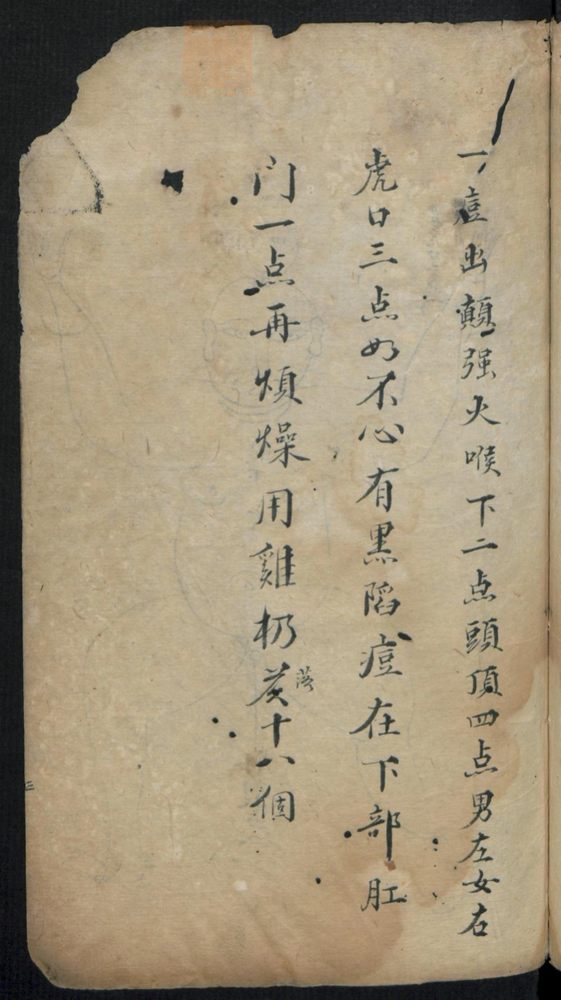 一痘出顛强火喉下二点頭頂四点男左女右
虎口三点如不心有黒陷痘在下部肛
门一点再煩燥用雞扔苳十八個